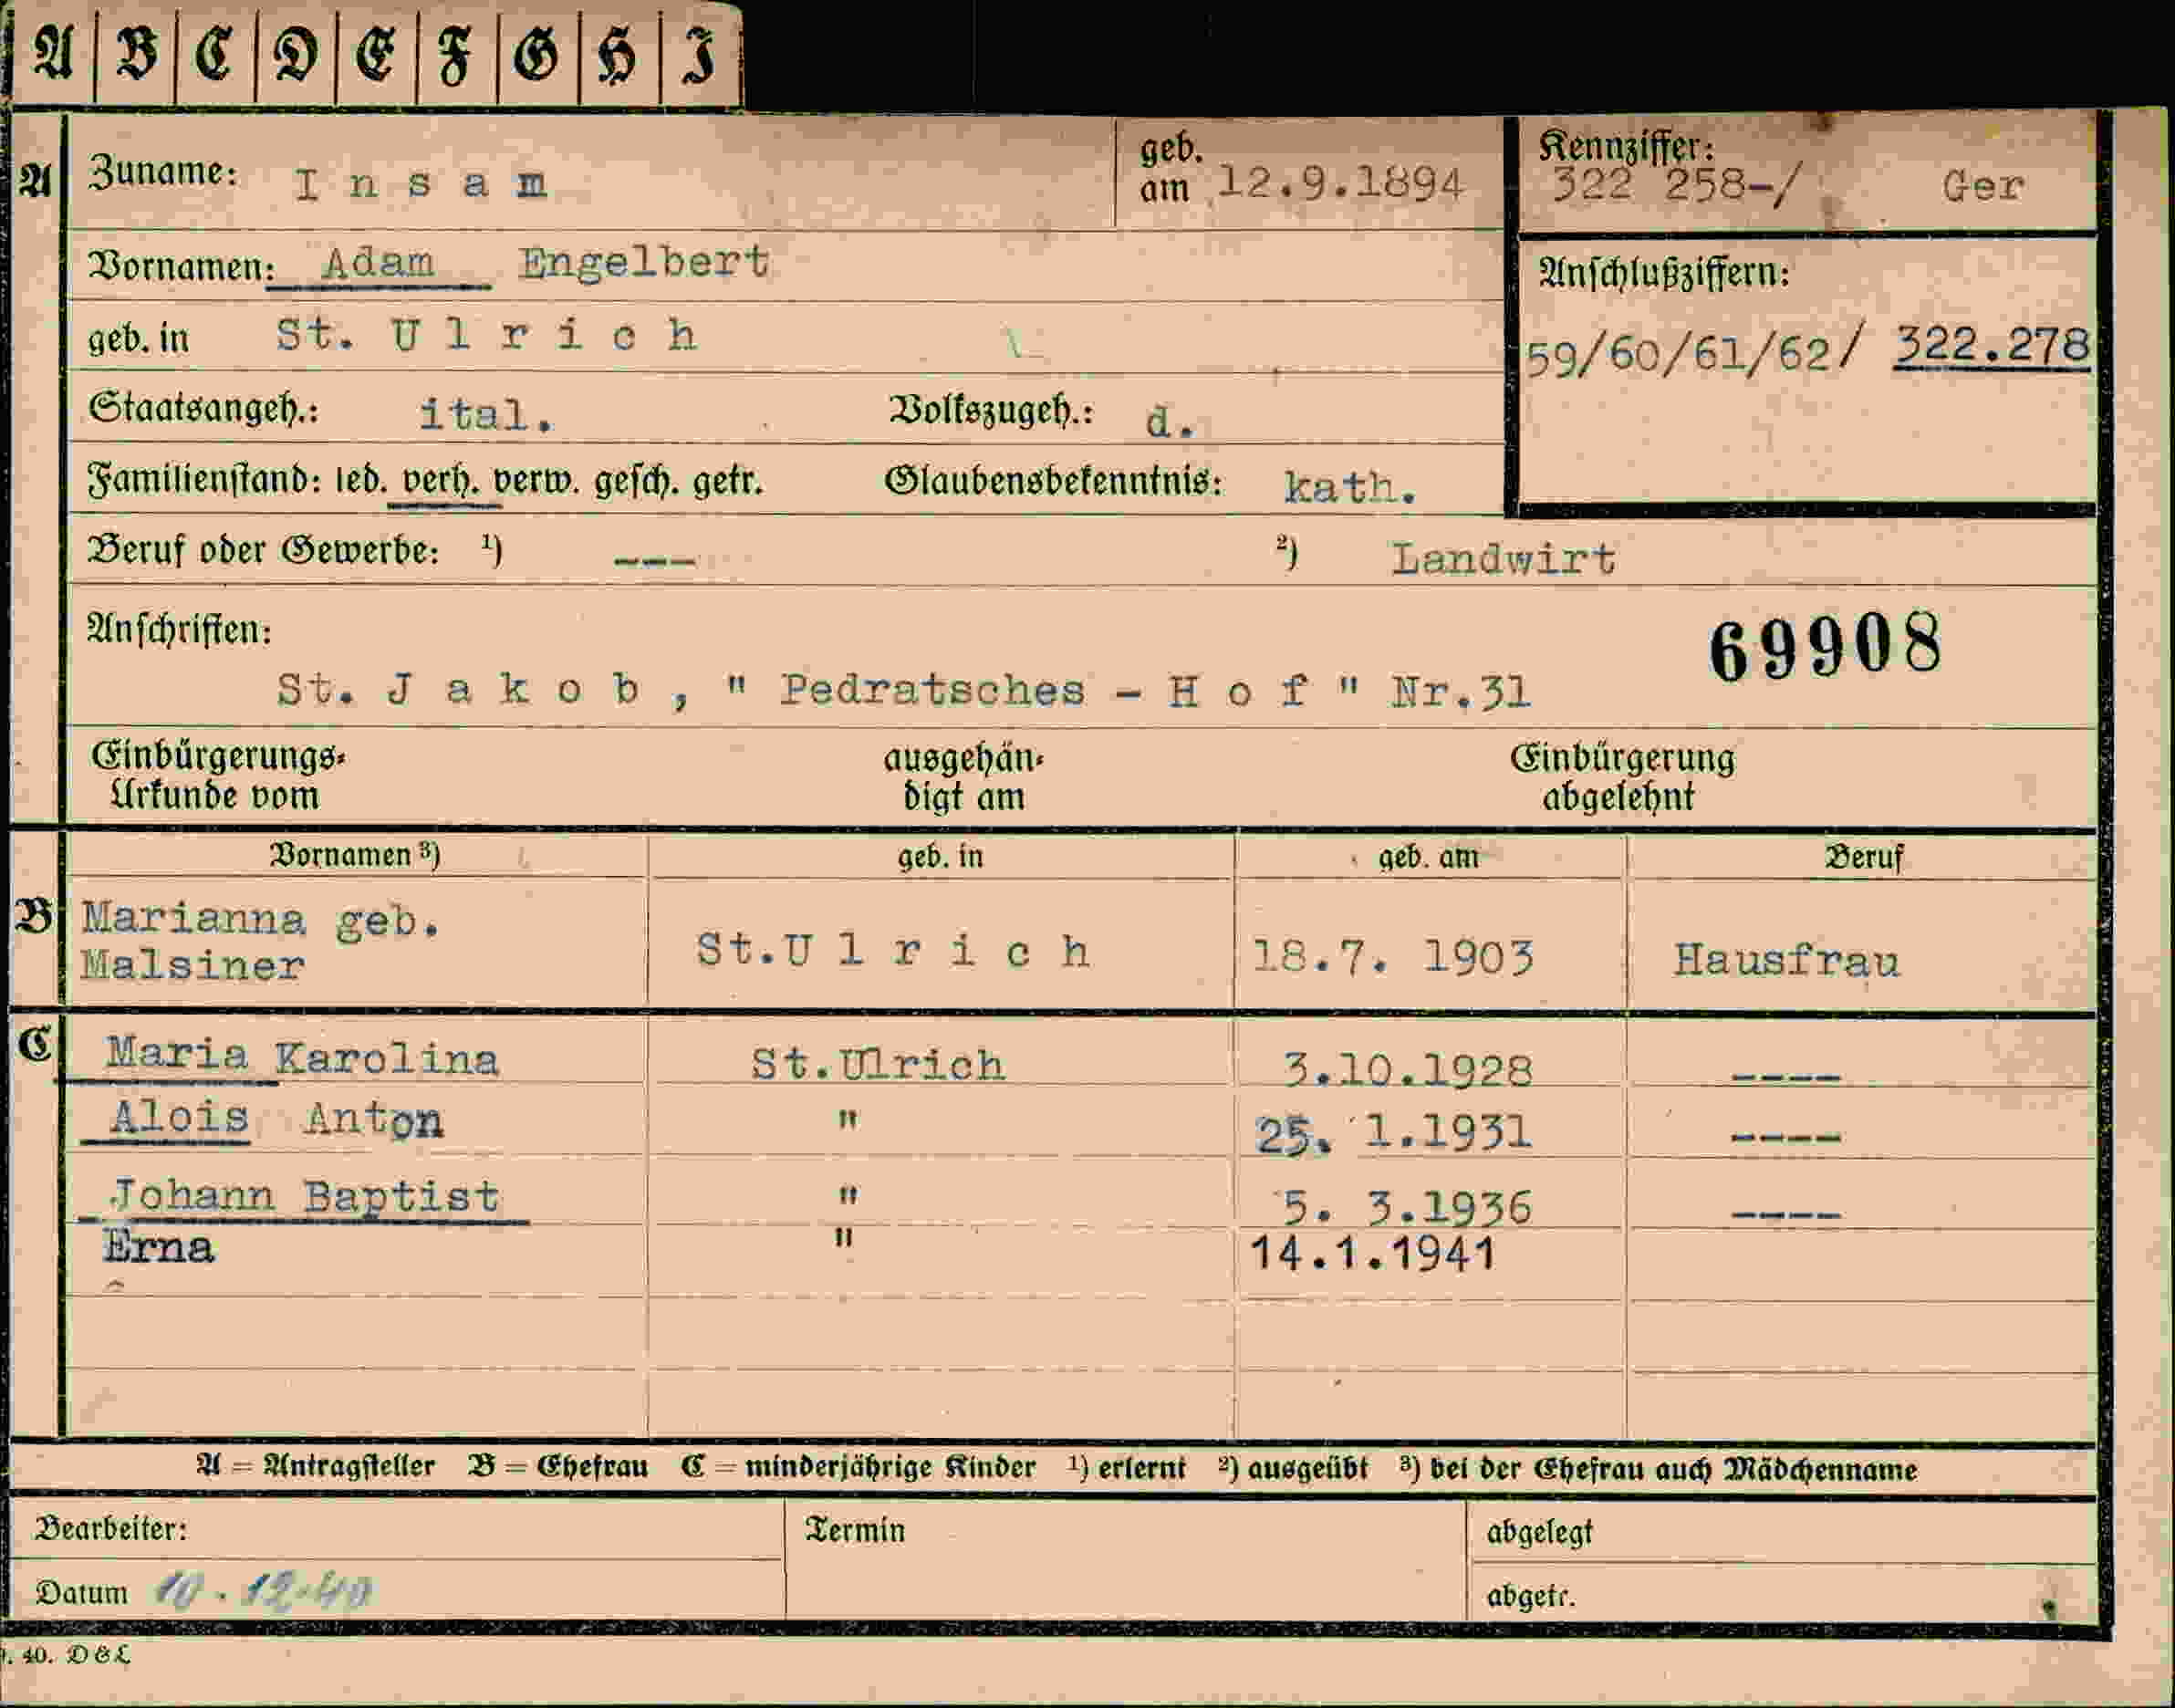 A B C D E F G H I
A Zuname: Insam geb. am 12.9.1894 Kennziffer: 322 258-/ Ger
Vornamen: Adam Engelbert Anschlußziffern:
geb. in St. Ulrich 59/60/61/62/ 322.278
Staatsangeh.: ital. Volkszugeh.: d.
Familienstand: led. verh. verw. gesch. getr. Glaubensbekenntnis: kath.
Beruf oder Gewerbe: ¹) --- ²) Landwirt
Anschriften: 69908
St. Jakob, " Pedratsches - Hof " Nr.31
Einbürgerungs- ausgehän- Einbürgerung
Urkunde vom digt am abgelehnt
Vornamen ³) geb. in geb. am Beruf
B Marianna geb.
Malsiner St.Ulrich 18.7. 1903 Hausfrau
C Maria Karolina St.Ulrich 3.10.1928 ----
Alois Anton " 25. 1.1931 ----
Johann Baptist " 5. 3.1936 ----
Erna " 14.1.1941
A = Antragsteller B = Ehefrau C = minderjährige Kinder ¹) erlernt ²) ausgeübt ³) bei der Ehefrau auch Mädchenname
Bearbeiter: Termin abgelegt
Datum 10.12.40 abgetr.
40. D&L